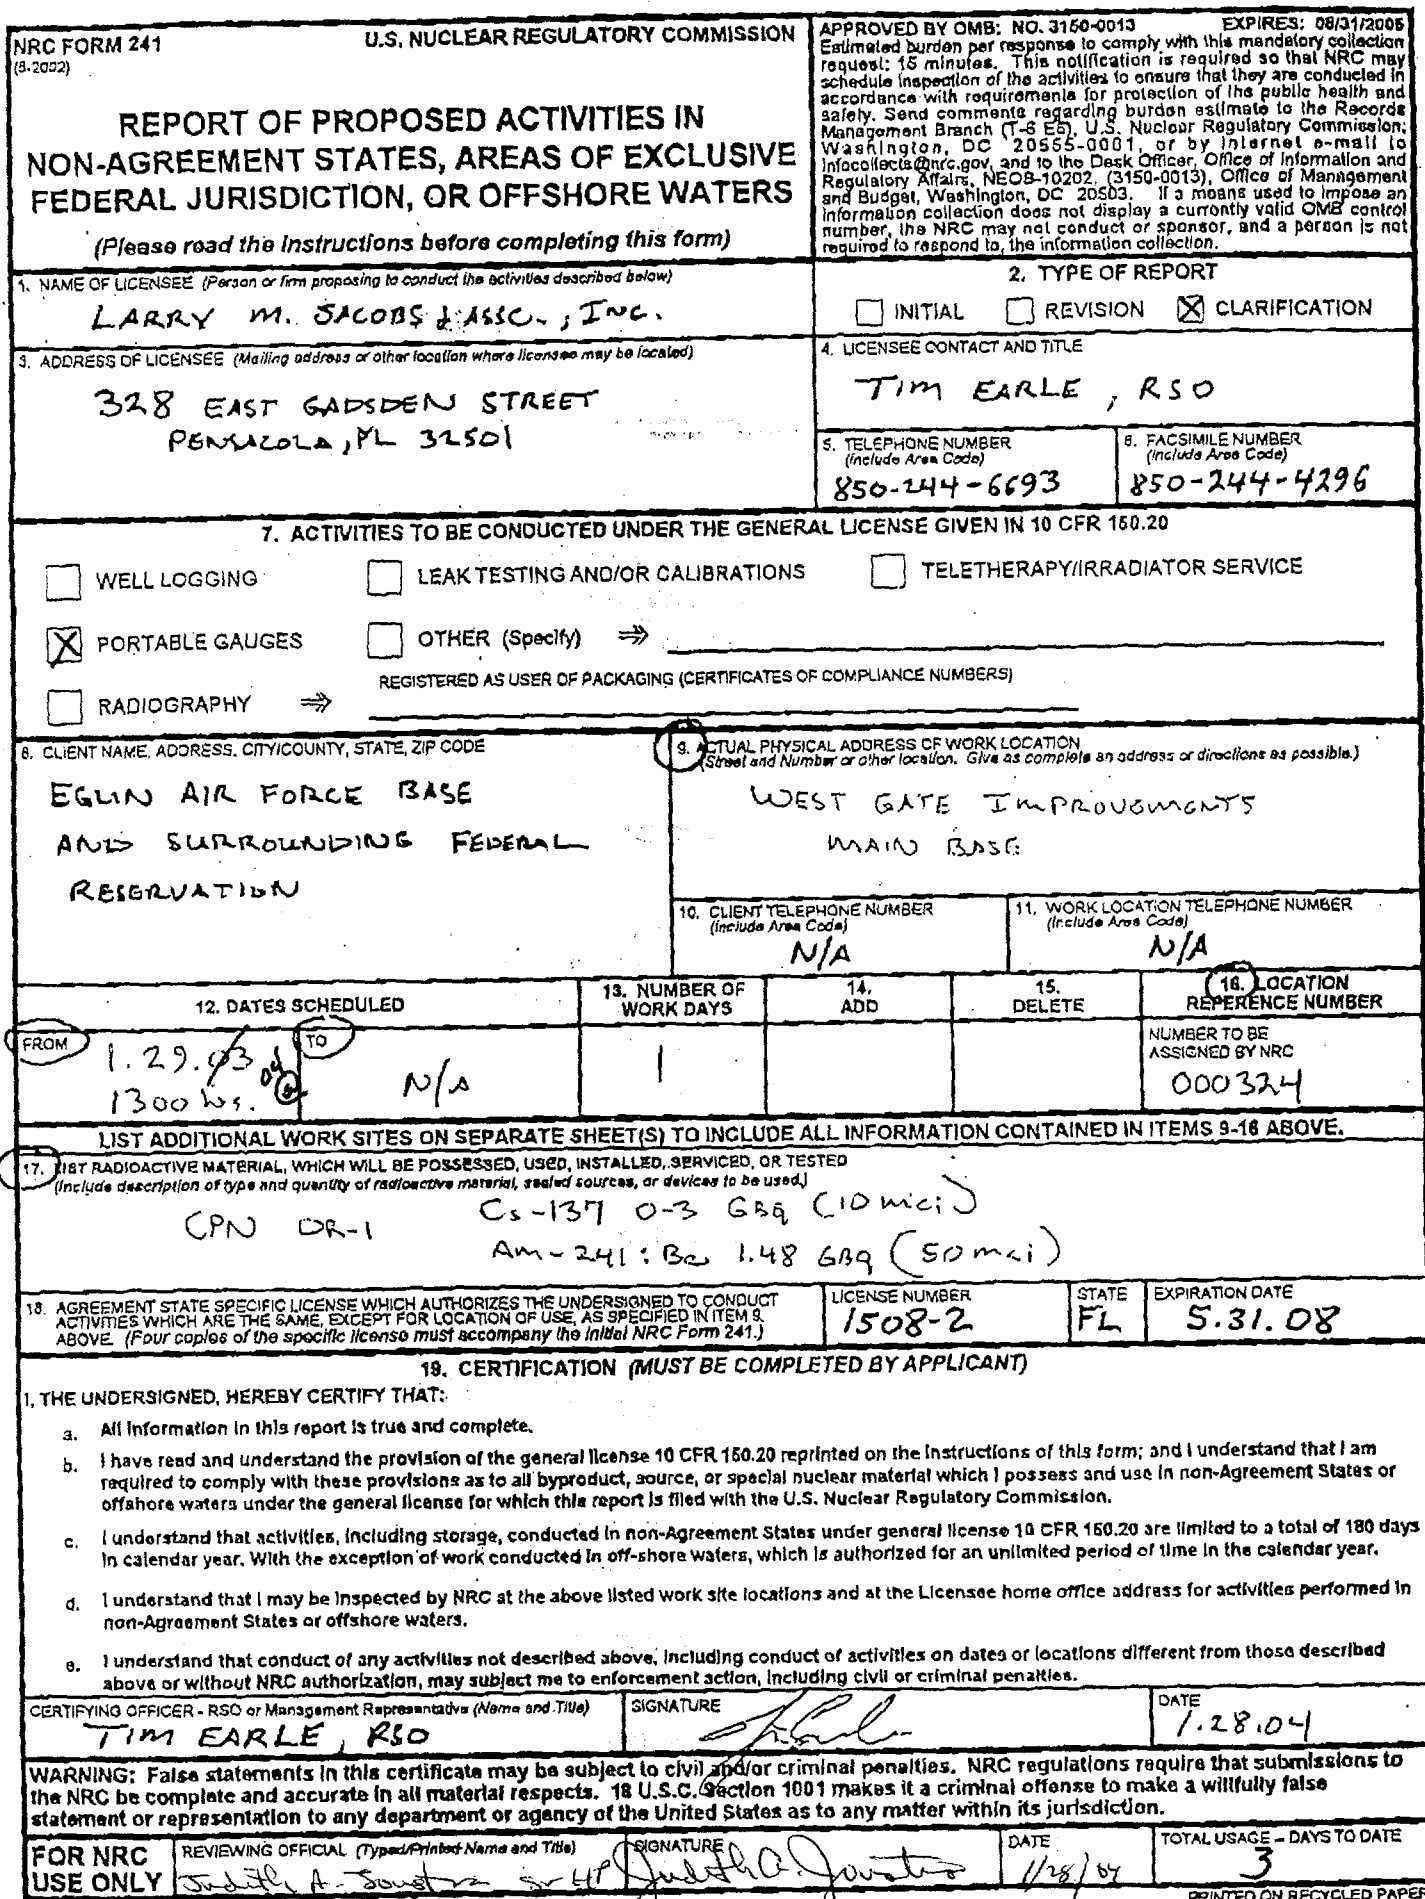 NRC FORM 241
(8-2002)
U.S. NUCLEAR REGULATORY COMMISSION
REPORT OF PROPOSED ACTIVITIES IN
NON-AGREEMENT STATES, AREAS OF EXCLUSIVE
FEDERAL JURISDICTION, OR OFFSHORE WATERS
(Please read the Instructions before completing this form)
APPROVED BY OMB: NO. 3150-0013 EXPIRES: 08/31/2005
Estimated burden per response to comply with this mandatory collection
request: 15 minutes. This notification is required so that NRC may
schedule inspection of the activities to ensure that they are conducted in
accordance with requirements for protection of the public health and
safety. Send comments regarding burden estimate to the Records
Management Branch (T-6 E6), U.S. Nuclear Regulatory Commission,
Washington, DC 20555-0001, or by Internet e-mail to
infocollects@nrc.gov, and to the Desk Officer, Office of Information and
Regulatory Affairs, NEOB-10202, (3150-0013), Office of Management
and Budget, Washington, DC 20503. If a means used to impose an
information collection does not display a currently valid OMB control
number, the NRC may not conduct or sponsor, and a person is not
required to respond to, the information collection.
1. NAME OF LICENSEE (Person or firm proposing to conduct the activities described below)
LARRY M. JACOBS & ASSC., INC.
2. TYPE OF REPORT
INITIAL REVISION X CLARIFICATION
3. ADDRESS OF LICENSEE (Mailing address or other location where licensee may be located)
328 EAST GADSDEN STREET
PENSACOLA, FL 32501
4. LICENSEE CONTACT AND TITLE
TIM EARLE, RSO
5. TELEPHONE NUMBER
(Include Area Code)
850-244-6693
6. FACSIMILE NUMBER
(Include Area Code)
850-244-4296
7. ACTIVITIES TO BE CONDUCTED UNDER THE GENERAL LICENSE GIVEN IN 10 CFR 150.20
WELL LOGGING LEAK TESTING AND/OR CALIBRATIONS TELETHERAPY/IRRADIATOR SERVICE
X PORTABLE GAUGES OTHER (Specify) ⇒
REGISTERED AS USER OF PACKAGING (CERTIFICATES OF COMPLIANCE NUMBERS)
RADIOGRAPHY ⇒
8. CLIENT NAME, ADDRESS, CITY/COUNTY, STATE, ZIP CODE
EGLIN AIR FORCE BASE
AND SURROUNDING FEDERAL
RESERVATION
9. ACTUAL PHYSICAL ADDRESS OF WORK LOCATION
(Street and Number or other location. Give as complete an address or directions as possible.)
WEST GATE IMPROVEMENTS
MAIN BASE
10. CLIENT TELEPHONE NUMBER
(Include Area Code)
N/A
11. WORK LOCATION TELEPHONE NUMBER
(Include Area Code)
N/A
12. DATES SCHEDULED
13. NUMBER OF
WORK DAYS
14.
ADD
15.
DELETE
16. LOCATION
REFERENCE NUMBER
FROM
1.29.03 04
1300 hrs.
TO
N/A
1
NUMBER TO BE
ASSIGNED BY NRC
000324
LIST ADDITIONAL WORK SITES ON SEPARATE SHEET(S) TO INCLUDE ALL INFORMATION CONTAINED IN ITEMS 9-16 ABOVE.
17. LIST RADIOACTIVE MATERIAL, WHICH WILL BE POSSESSED, USED, INSTALLED, SERVICED, OR TESTED
(Include description of type and quantity of radioactive material, sealed sources, or devices to be used.)
CPN DR-1 Cs-137 0-3 GBq (10 mci)
Am-241:Be 1.48 GBq (50 mci)
18. AGREEMENT STATE SPECIFIC LICENSE WHICH AUTHORIZES THE UNDERSIGNED TO CONDUCT
ACTIVITIES WHICH ARE THE SAME, EXCEPT FOR LOCATION OF USE, AS SPECIFIED IN ITEM 9.
ABOVE. (Four copies of the specific license must accompany the initial NRC Form 241.)
LICENSE NUMBER
1508-2
STATE
FL
EXPIRATION DATE
5.31.08
19. CERTIFICATION (MUST BE COMPLETED BY APPLICANT)
I, THE UNDERSIGNED, HEREBY CERTIFY THAT:
a. All information in this report is true and complete.
b. I have read and understand the provision of the general license 10 CFR 150.20 reprinted on the instructions of this form; and I understand that I am
required to comply with these provisions as to all byproduct, source, or special nuclear material which I possess and use in non-Agreement States or
offshore waters under the general license for which this report is filed with the U.S. Nuclear Regulatory Commission.
c. I understand that activities, including storage, conducted in non-Agreement States under general license 10 CFR 150.20 are limited to a total of 180 days
in calendar year. With the exception of work conducted in off-shore waters, which is authorized for an unlimited period of time in the calendar year.
d. I understand that I may be inspected by NRC at the above listed work site locations and at the Licensee home office address for activities performed in
non-Agreement States or offshore waters.
e. I understand that conduct of any activities not described above, including conduct of activities on dates or locations different from those described
above or without NRC authorization, may subject me to enforcement action, including civil or criminal penalties.
CERTIFYING OFFICER - RSO or Management Representative (Name and Title)
TIM EARLE, RSO
SIGNATURE
DATE
1.28.04
WARNING: False statements in this certificate may be subject to civil and/or criminal penalties. NRC regulations require that submissions to
the NRC be complete and accurate in all material respects. 18 U.S.C. Section 1001 makes it a criminal offense to make a willfully false
statement or representation to any department or agency of the United States as to any matter within its jurisdiction.
FOR NRC
USE ONLY
REVIEWING OFFICIAL (Typed/Printed Name and Title)
Judith A. Joustra Sr HP
SIGNATURE
Judith A. Joustra
DATE
1/28/04
TOTAL USAGE – DAYS TO DATE
3
PRINTED ON RECYCLED PAPER